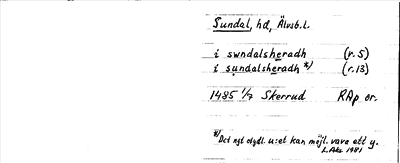 Sundal, hd, Älvsb.l.
i swndalsheradh (r.5)
i sundalsheradh *) (r.13)
1485 1/7 Skerrud RAp or.
*) Det nyt otydl. u:et kan möjl. vara ett y.
L.Aks 1981